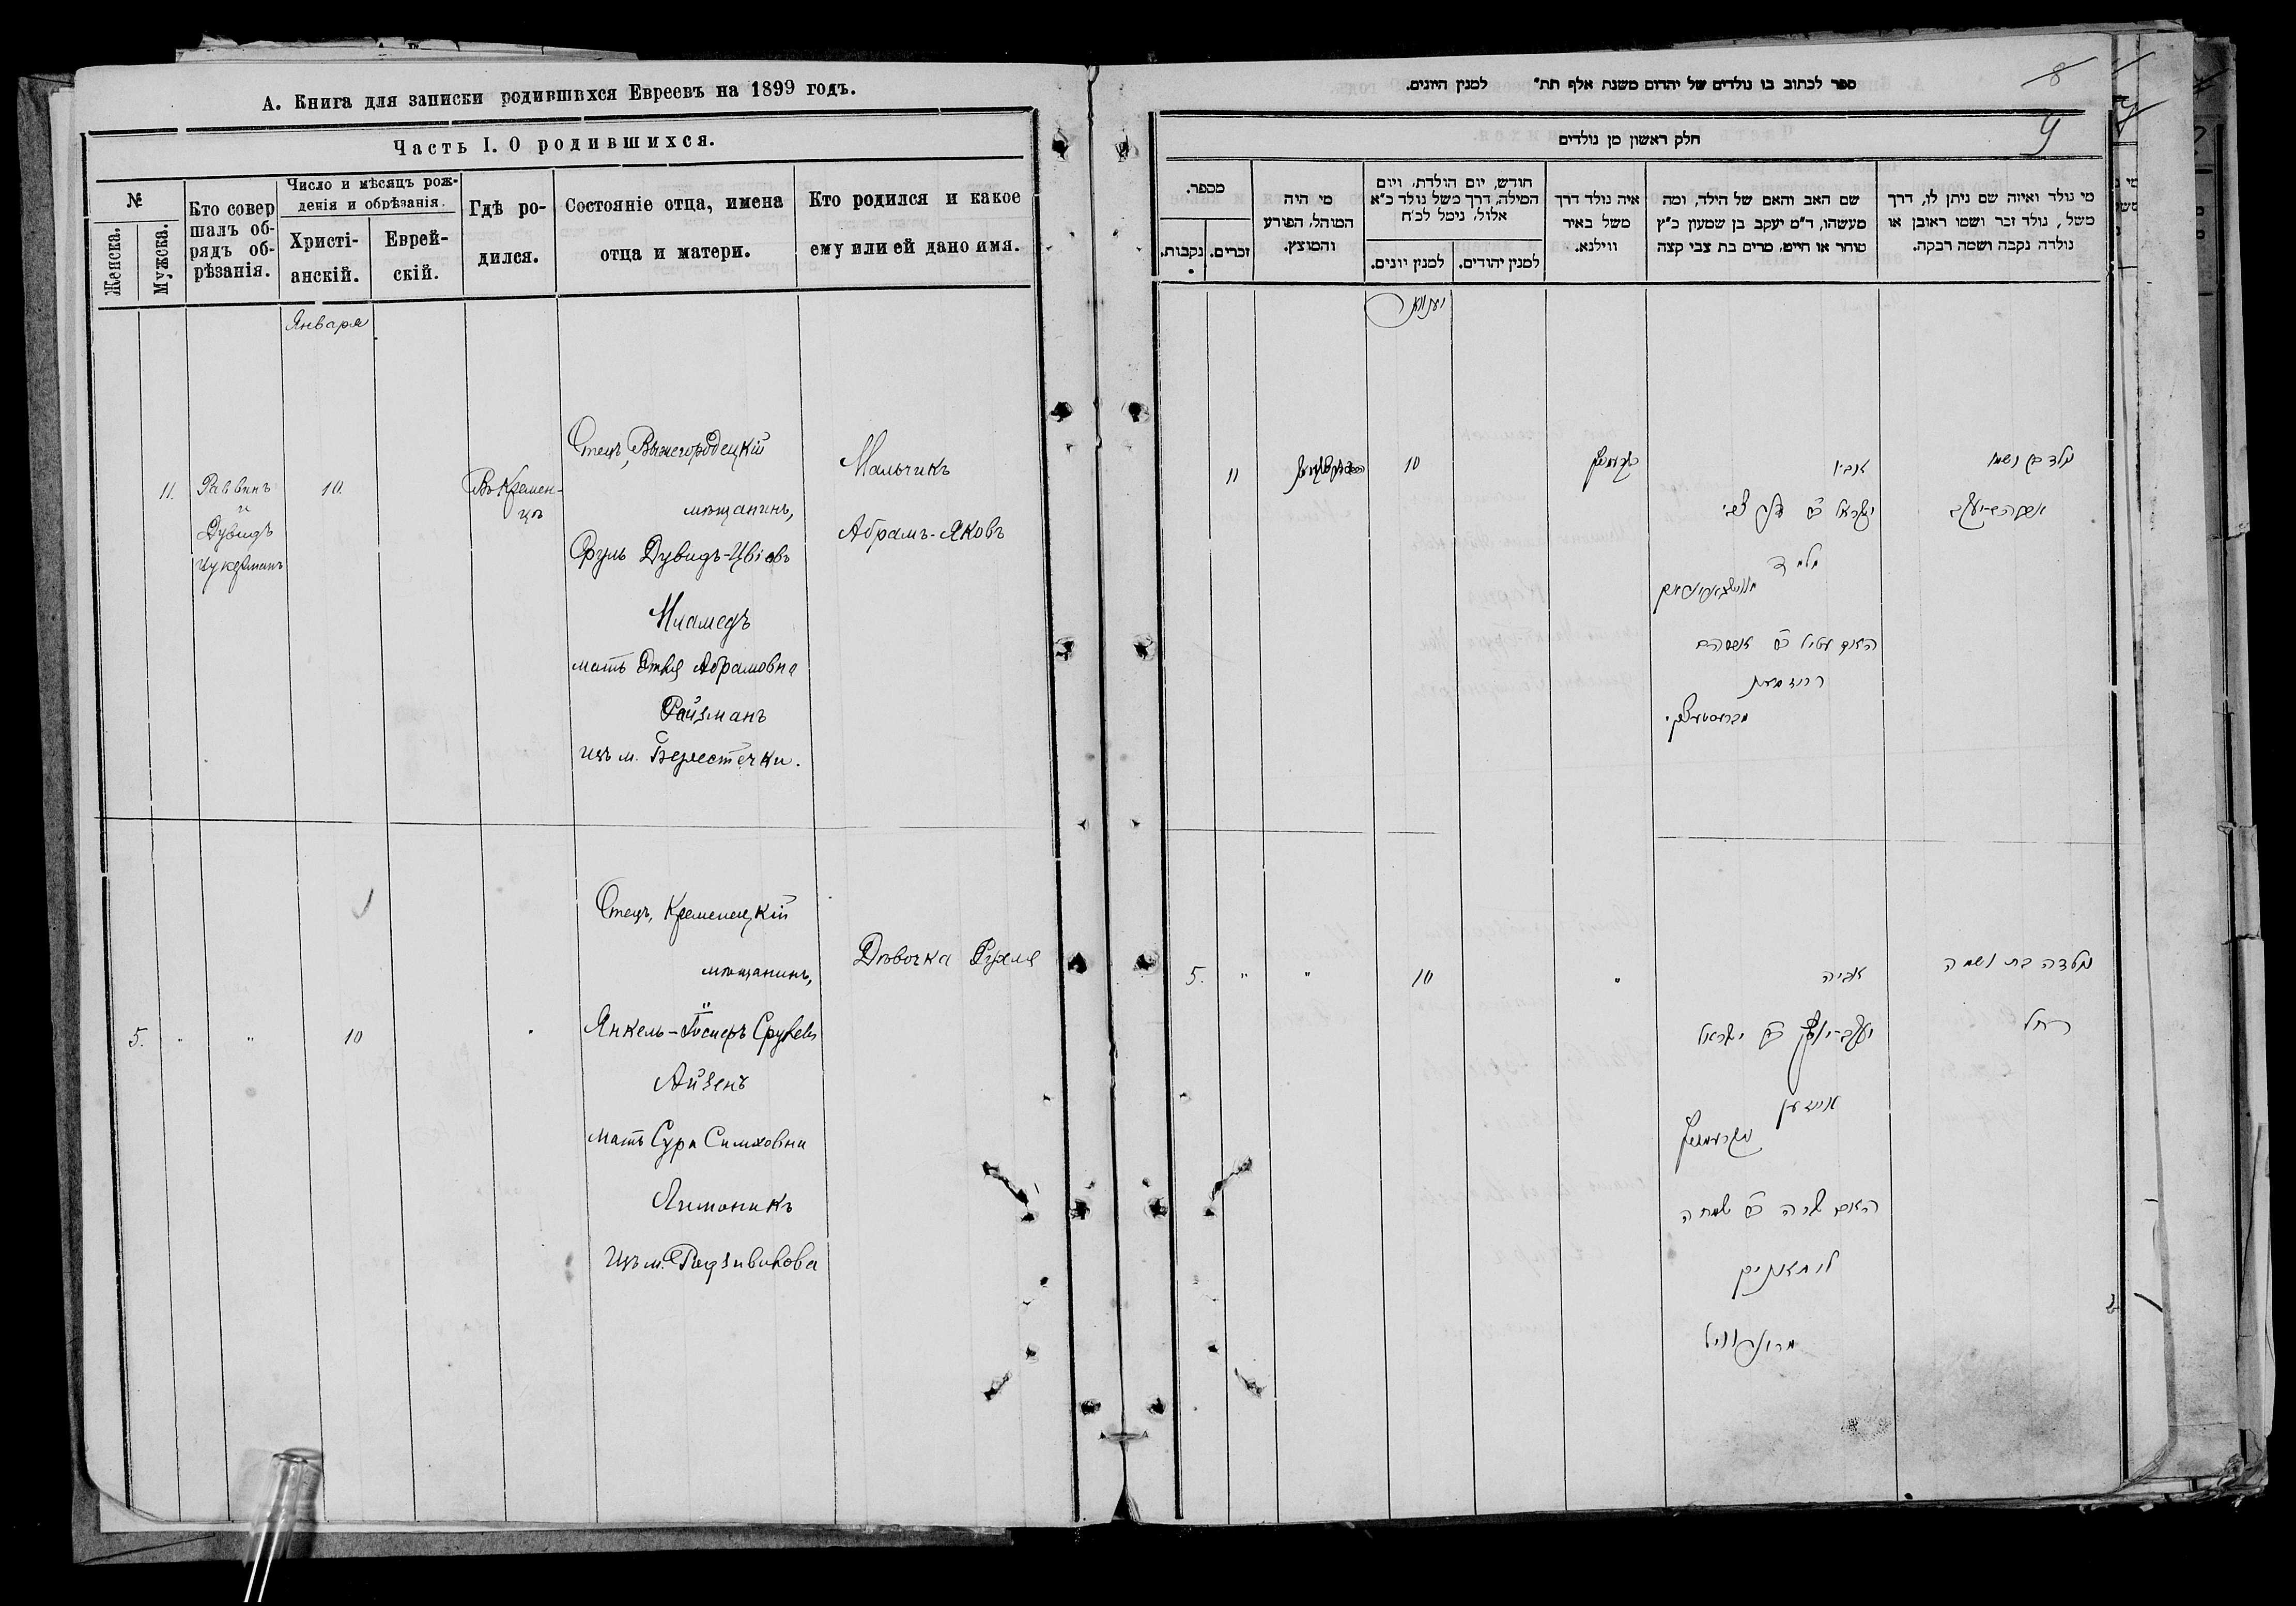 А. Книга для записки родившихся Евреевъ на 1899 годъ.
Часть I. О родившихся.
№
Женска.
Мужска.
Кто совер
шалъ об-
рядъ об-
рѣзанія.
Число и мѣсяцъ рож-
денія и обрѣзанія.
Христі-
анскій.
Еврей-
скій.
Гдѣ ро-
дился.
Состояніе отца, имена
отца и матери.
Кто родился и какое
ему или ей дано имя.
Января
11.
Раввинъ
и
Дувидъ
Цукерманъ
10.
Въ Кремен-
цѣ
Отецъ, Вышегородецкій
мѣщанинъ,
Сруль Дувидъ-Цвіовъ
Мламедъ
мать Этля Абрамовна
Ройзманъ
изъ м. Берестечки.
Мальчикъ
Абрамъ-Яковъ
5.
"
"
10
"
Отецъ, Кременецкій
мѣщанинъ,
Янкель-Іосифъ Срулевъ
Айзенъ
мать Сура Симховна
Лимоникъ
изъ м. Радзивилова
Дѣвочка Рухля
ספר לכתוב בו נולדים של יהדום משנת אלף תת" למנין היונים.
8
9
חלק ראשון מן נולדים
מספר.
נקבות.
זכרים.
מי היה
המוהל, הפורע
והמוצץ.
חודש, יום הולדת, ויום
המילה, דרך משל נולד כ"א
אלול, נימל לכ"ח
למנין יונים.
למנין יהודים.
איה נולד דרך
משל באיר
ווילנא.
שם האב והאם של הילד, ומה
מעשהו, ד"מ יעקב בן שמעון כ"ץ
סוחר או חייט, מרים בת צבי קצה
מי נולד ואיזה שם ניתן לו, דרך
משל, נולד זכר ושמו ראובן או
נולדה נקבה ושמה רבקה.
יענואר
11
10
קרעמניץ
אביו
ישראל ב"ר דוד צבי
מלמד
האם עטיל ב"ר אברהם
רויזמאן
נולד בן ושמו
אברהם-יעקב
5.
"
"
10
"
אביה
יעקב-יוסף ב"ר ישראל
אייזען
מקרעמניץ
האם שרה ב"ר שמחה
נולדה בת ושמה
רחל